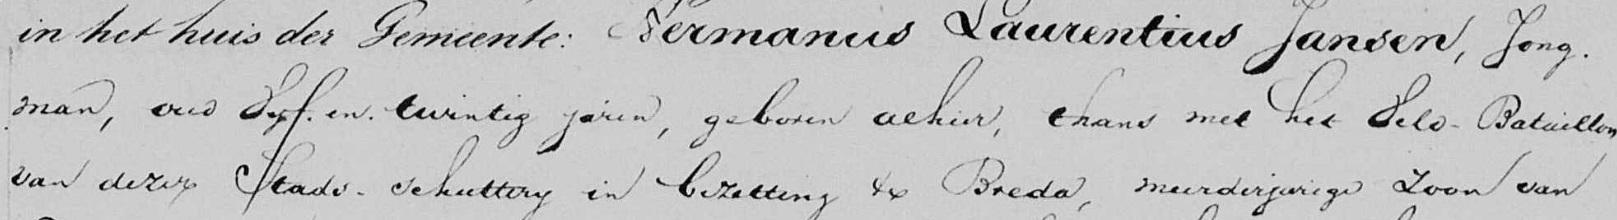 in het huis der Gemeente: Hermanus Laurentius Jansen, Jong-
man, oud Vijf-en-twintig jaren, geboren alhier, thans met het Veld-Bataillon
van dezer Stads-schuttery in bezetting te Breda, meerderjarige Zoon van